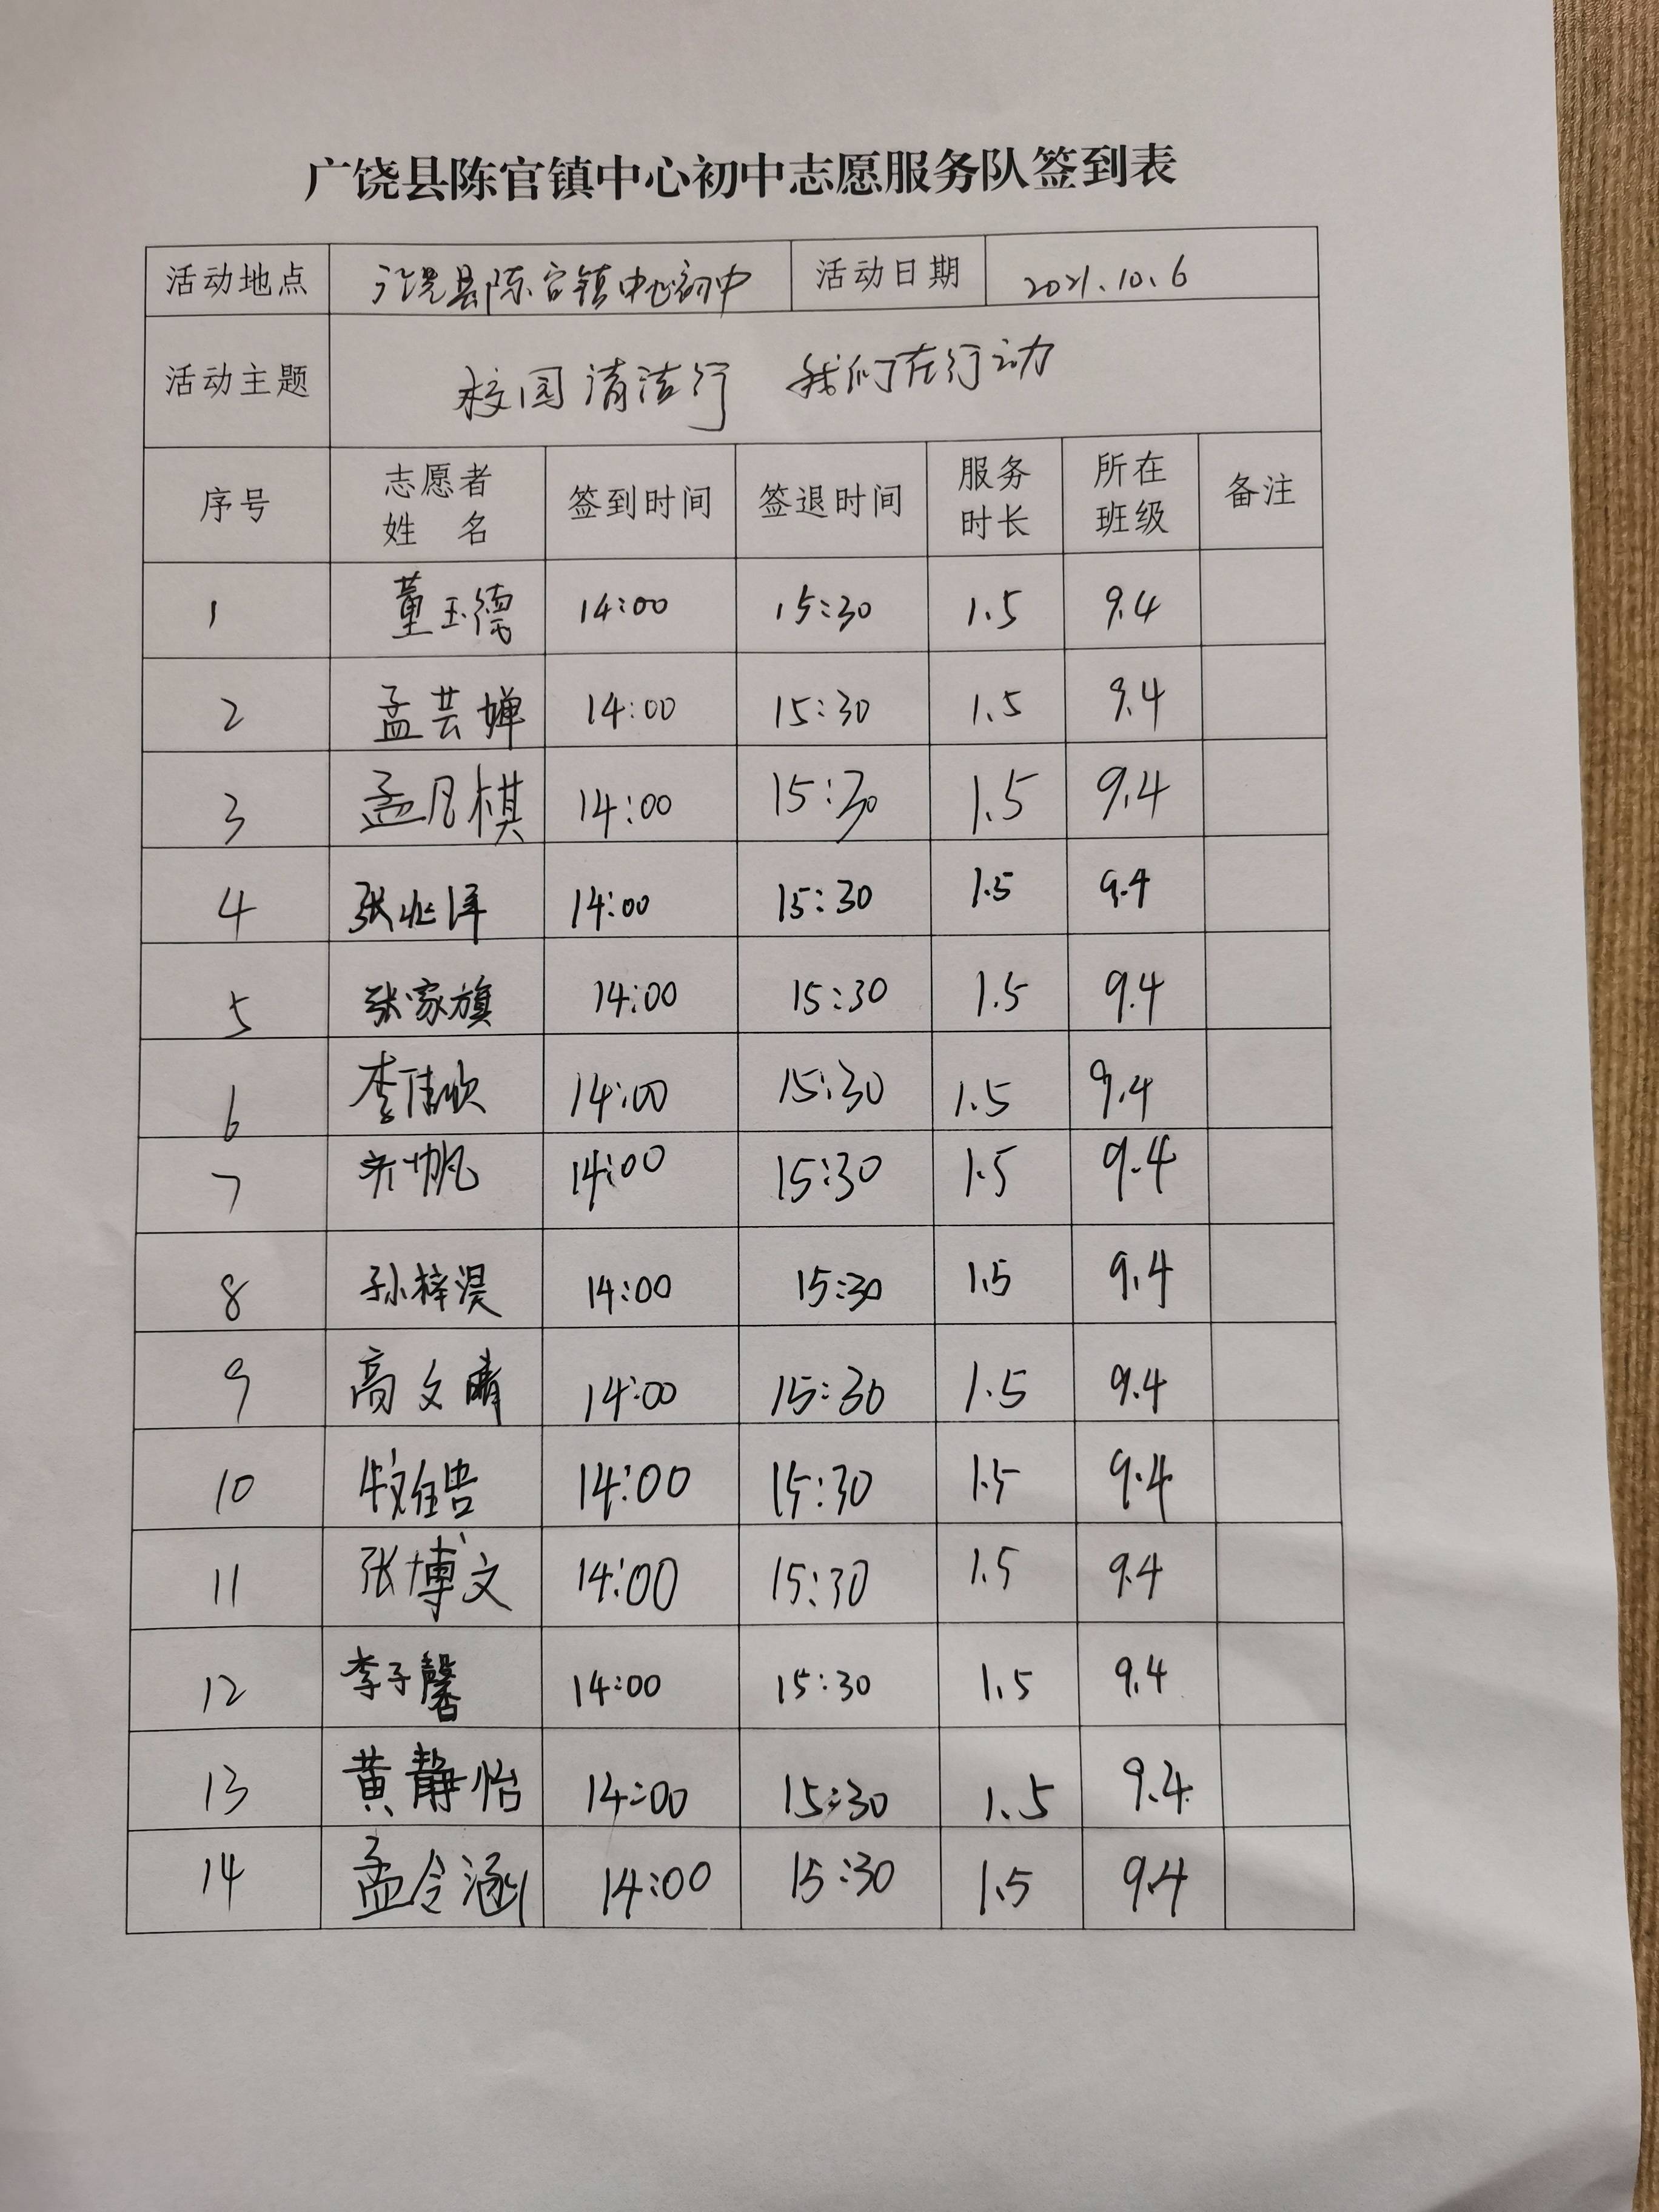 广饶县陈官镇中心初中志愿服务队签到表
活动地点 广饶县陈官镇中心初中 活动日期 2021.10.6
活动主题 校园清洁行 我们在行动
序号 志愿者姓名 签到时间 签退时间 服务时长 所在班级 备注
1 董玉德 14:00 15:30 1.5 9.4
2 孟芸婵 14:00 15:30 1.5 9.4
3 孟凡棋 14:00 15:30 1.5 9.4
4 张兆洋 14:00 15:30 1.5 9.4
5 张家旗 14:00 15:30 1.5 9.4
6 李佳欣 14:00 15:30 1.5 9.4
7 齐帆 14:00 15:30 1.5 9.4
8 孙梓淏 14:00 15:30 1.5 9.4
9 高文晴 14:00 15:30 1.5 9.4
10 14:00 15:30 1.5 9.4
11 张博文 14:00 15:30 1.5 9.4
12 李子馨 14:00 15:30 1.5 9.4
13 黄静怡 14:00 15:30 1.5 9.4
14 孟令涵 14:00 15:30 1.5 9.4